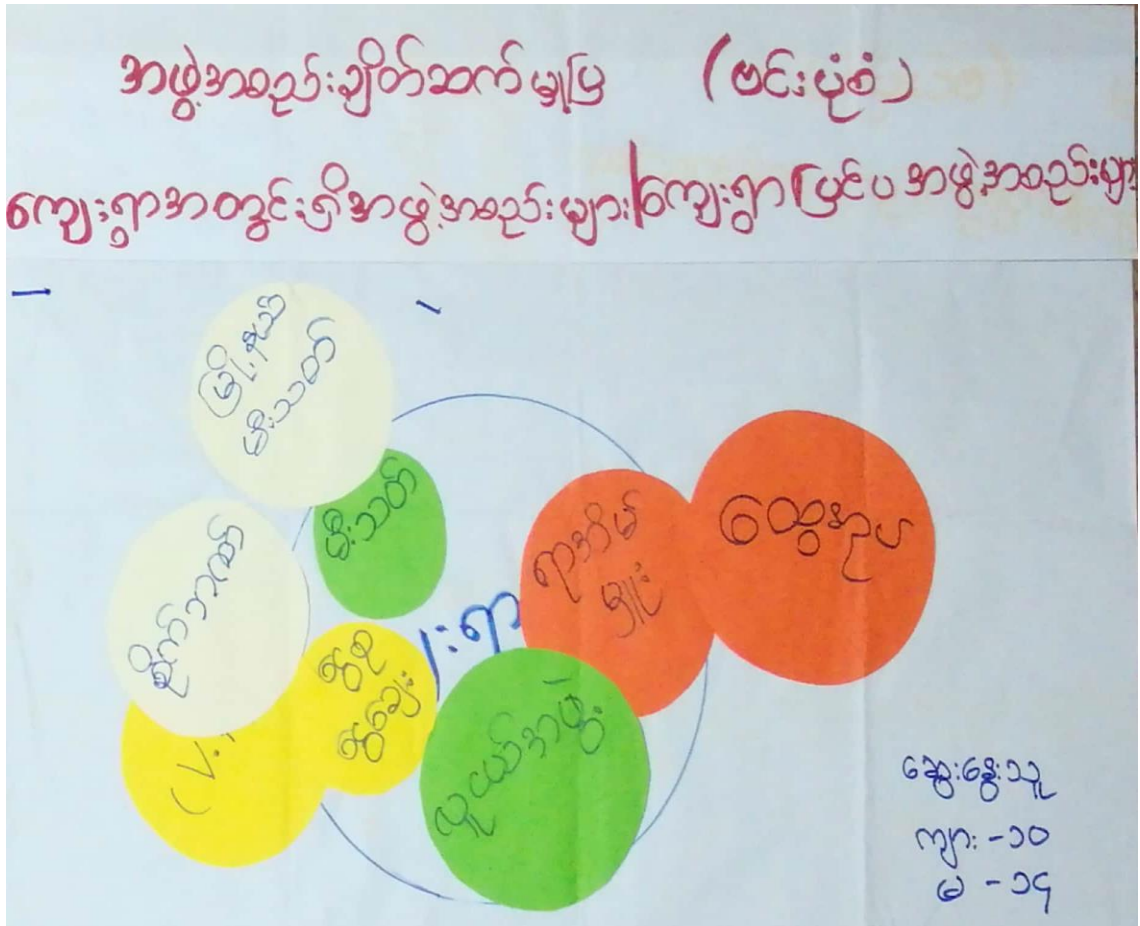 အဖွဲ့အစည်းချိတ်ဆက်မှုပြ (ဗင်းပုံစံ)
ကျေးရွာအတွင်းရှိအဖွဲ့အစည်းများ/ကျေးရွာပြင်ပအဖွဲ့အစည်းများ
မြို့နယ်
မီးသတ်
မီးသတ်
ရာအိမ်
မှူး
ထွေအုပ်
စိုက်
းရွာ
လူငယ်အဖွဲ့
ဆွေးနွေးသူ
ကျား -၁၀
မ -၁၄